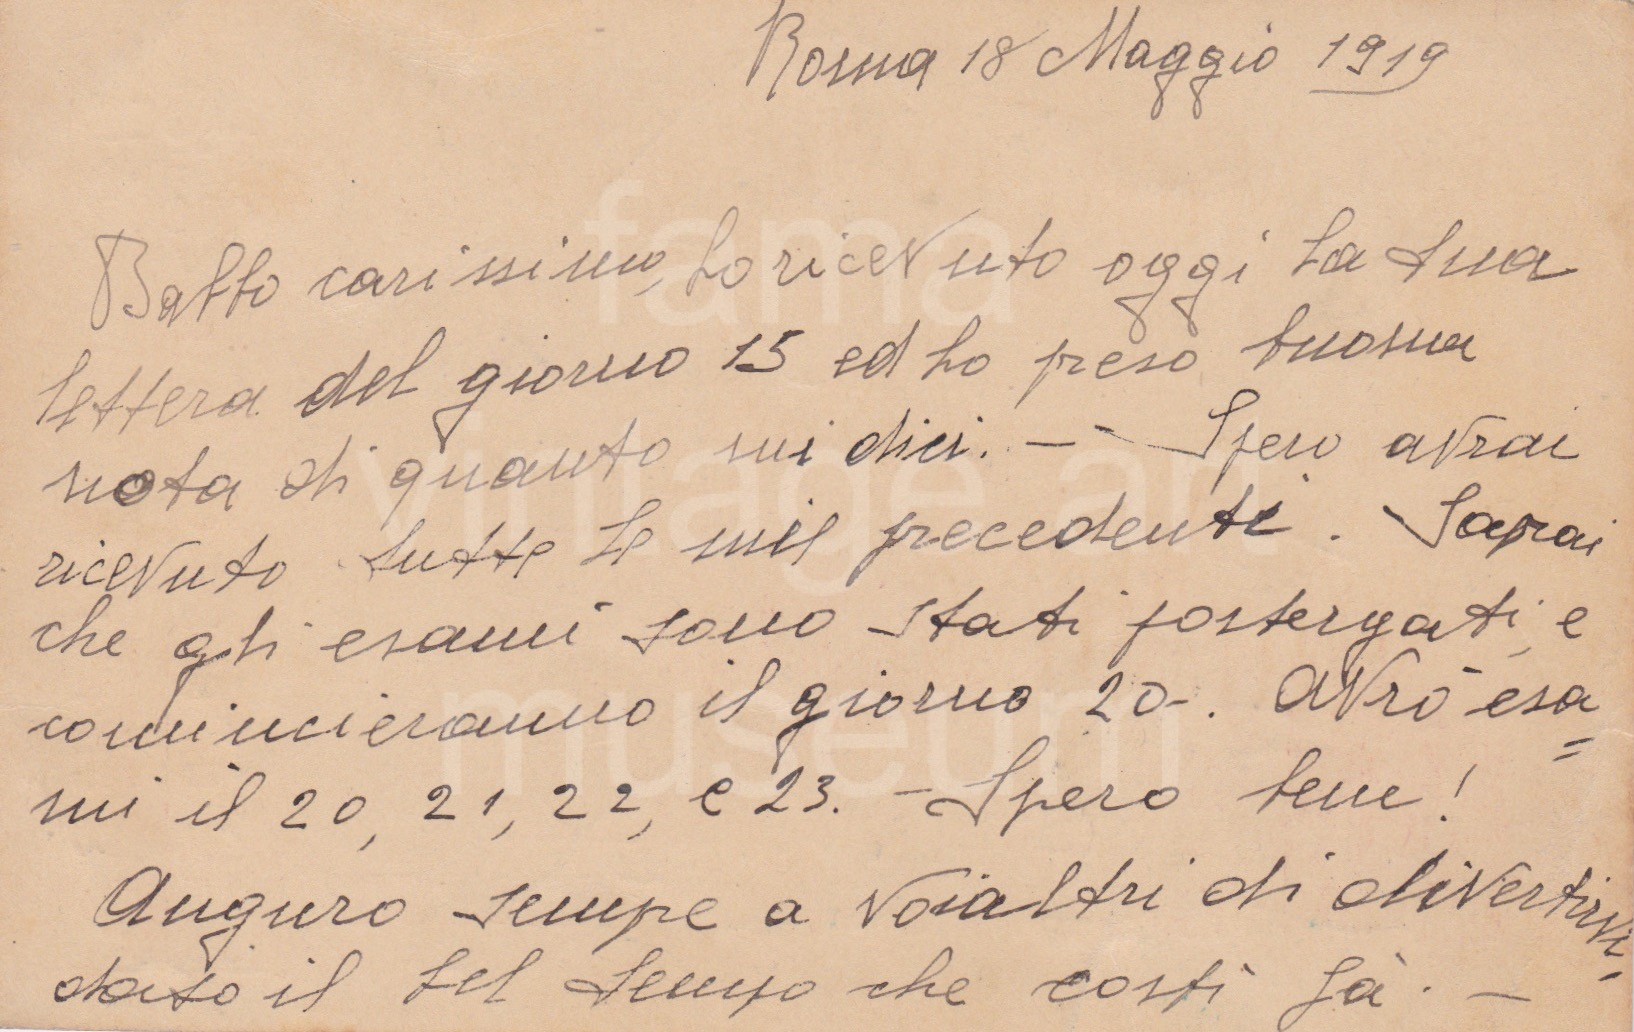 Roma 18 Maggio 1919
Babbo carissimo, ho ricevuto oggi la tua
lettera del giorno 15 ed ho preso buona
nota di quanto mi dici. — Spero avrai
ricevuto tutte le mie precedenti. Saprai
che gli esami sono stati postergati, e
comincieranno il giorno 20-. Avrò esa=
mi il 20, 21, 22, e 23. — Spero bene!
Auguro sempe a voialtri di divertirvi
dato il bel tempo che costì fà. —
fama
vintage art
museum